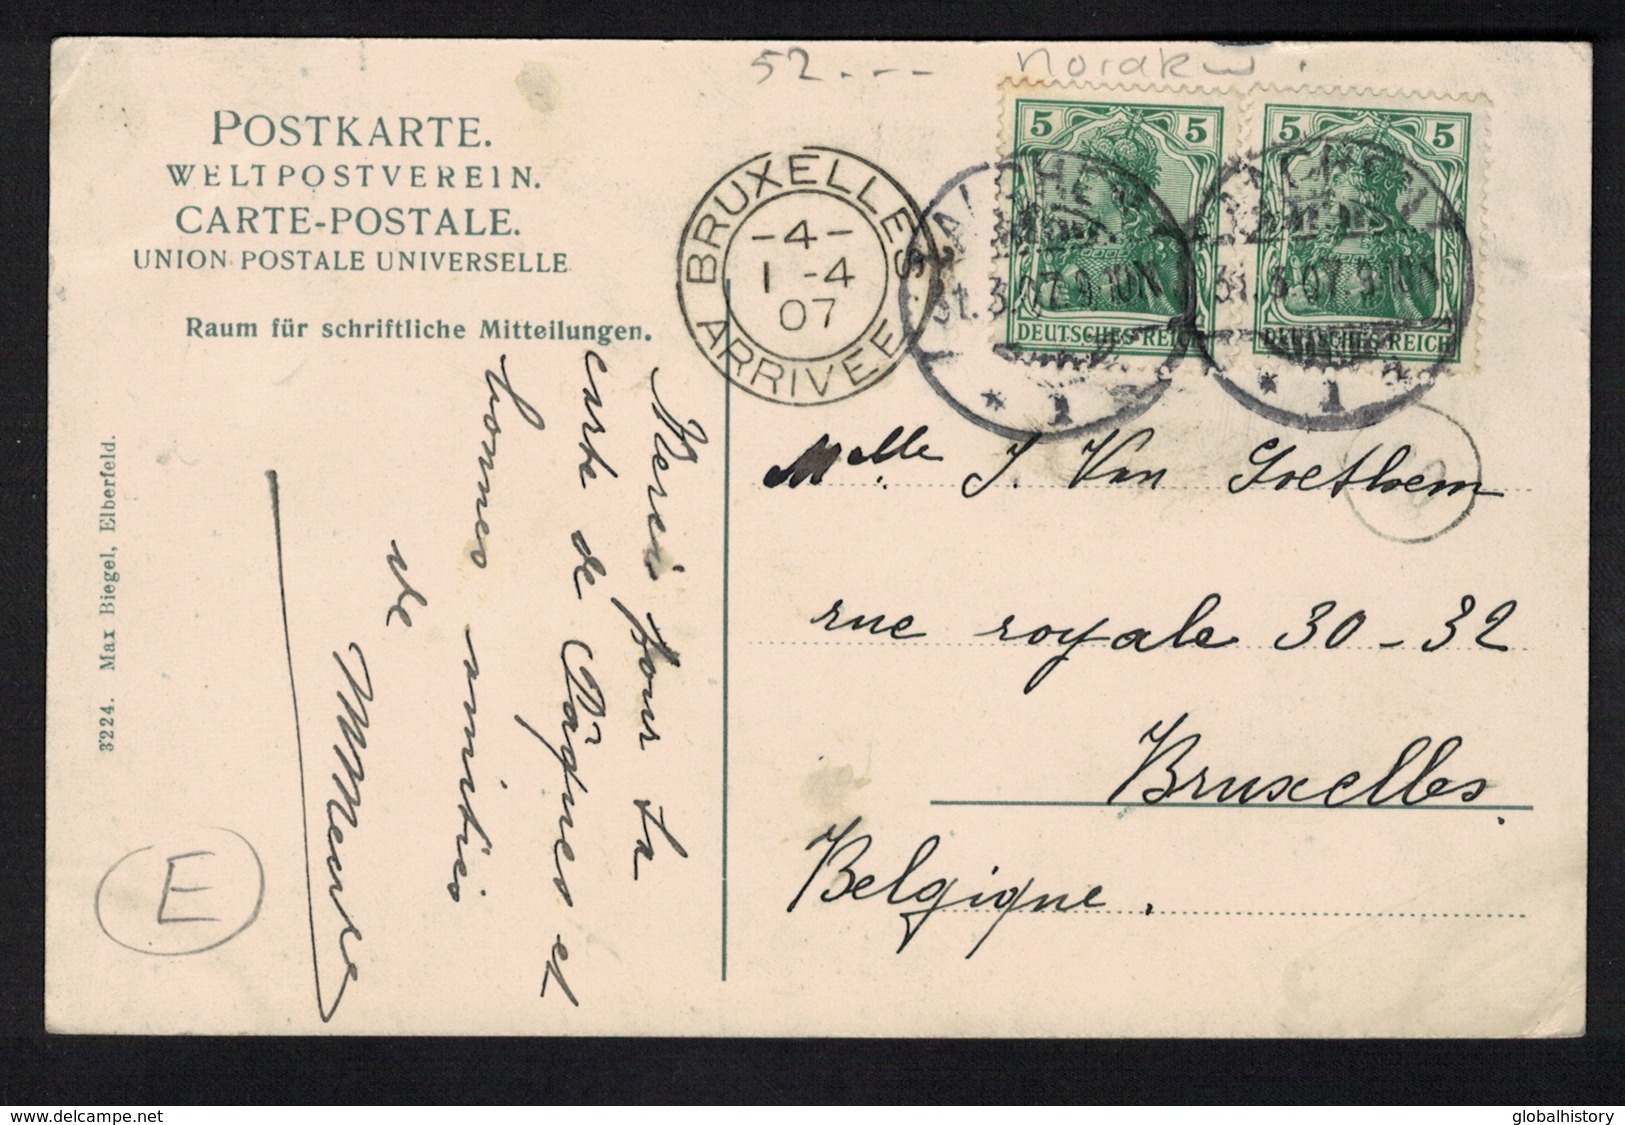 52 . - - -
POSTKARTE.
WELTPOSTVEREIN.
CARTE-POSTALE.
UNION POSTALE UNIVERSELLE
Raum für schriftliche Mitteilungen.
Merci pour ta
carte de Pâques et
bonnes amitiés
de
3224. Max Biegel, Elberfeld.
E
BRUXELLES
-4-
1-4
07
ARRIVEE
5 5
DEUTSCHES REICH
5 5
DEUTSCHES REICH
AACHEN
31.3.07.9-10N
* 1
AACHEN
31.3.07.9-10N
* 1
Melle J. Van Goethem
rue royale 30-32
Bruxelles
Belgique.
globalhistory
delcampe.net